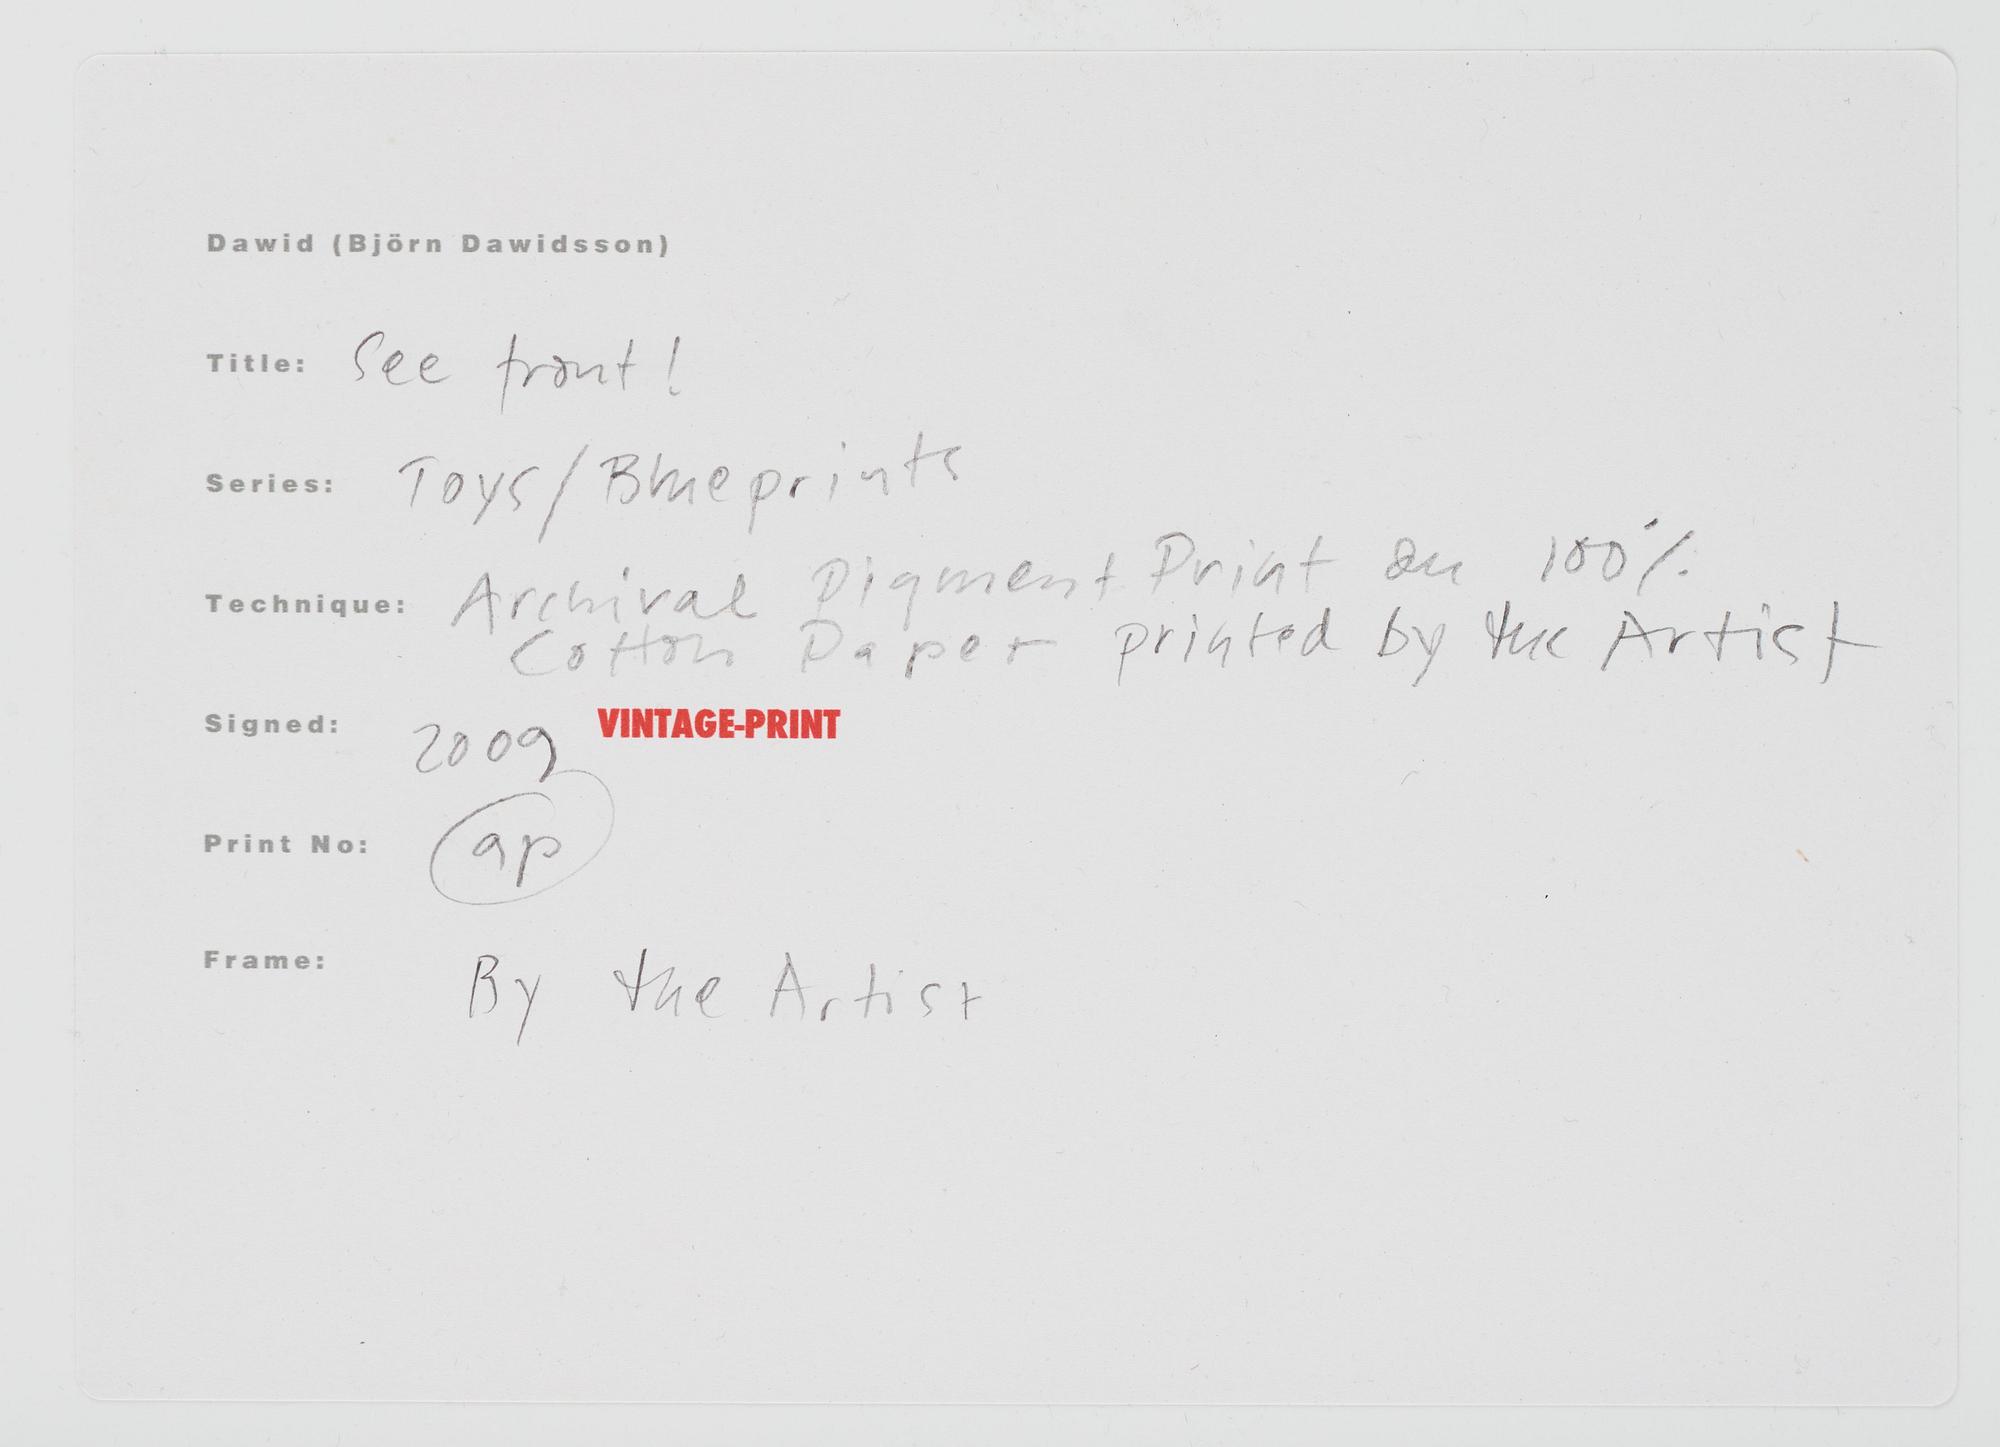 Dawid (Björn Dawidsson)
Title: See front!
Series: Toys/Blueprints
Technique: Archival Pigment Print on 100%
Cotton Paper printed by the Artist
Signed: 2009 VINTAGE-PRINT
Print No: ap
Frame: By the Artist